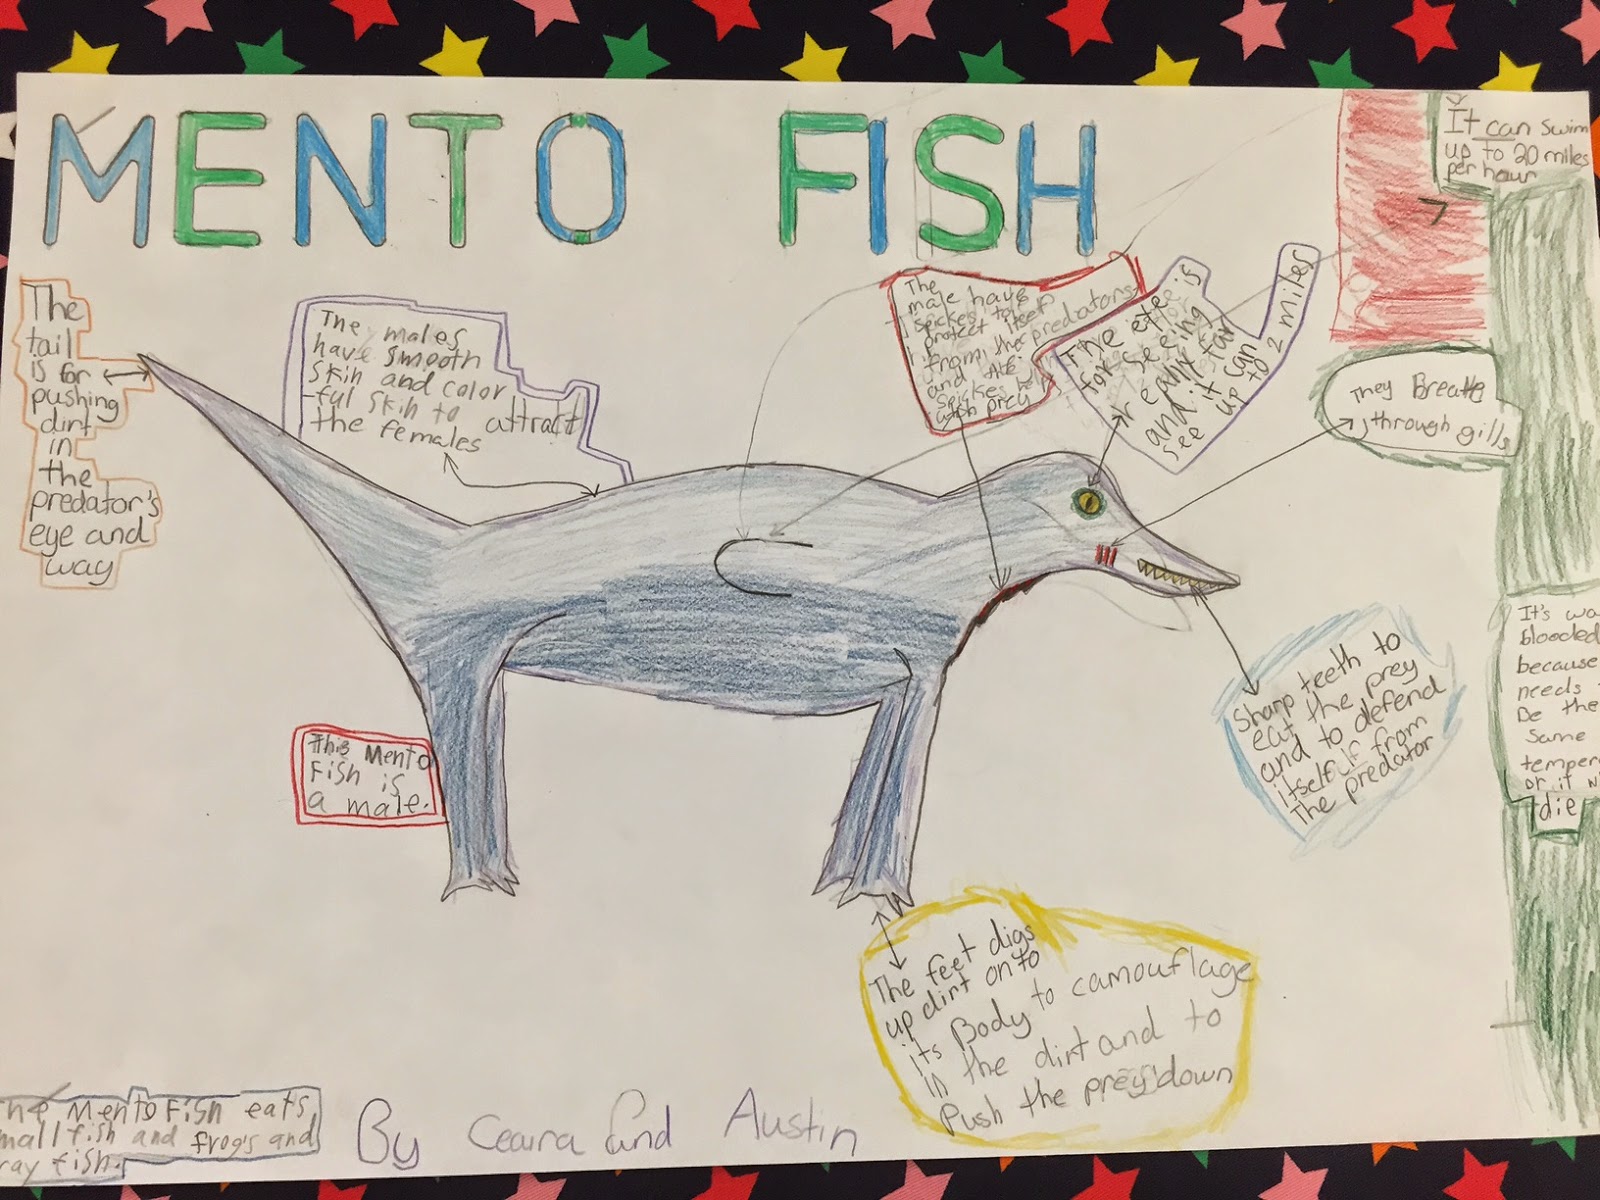 MENTO FISH
It can swim
up to 20 miles
per hour
The
tail
is for
pushing
dirt
in
the
predator's
eye and
way
The males
have smooth
skin and color
-ful skin to attract
the females
The
male have
spickes
to
protect itself
from the predators
and the
spickes help
prey
The eye is
for seeing
really far
and it can
see up to 2 miles
They Breathe
through gills
This Mento
Fish is
a male.
Sharp teeth to
eat the prey
and to defend
itself from
The predator
It's
blooded
because
needs
be the
same
or it
die
The feet digs
up dirt onto
its Body to camouflage
in the dirt and to
Push the prey down
Mento Fish eats
fish and frog's and
fish.
By Ceaira and Austin